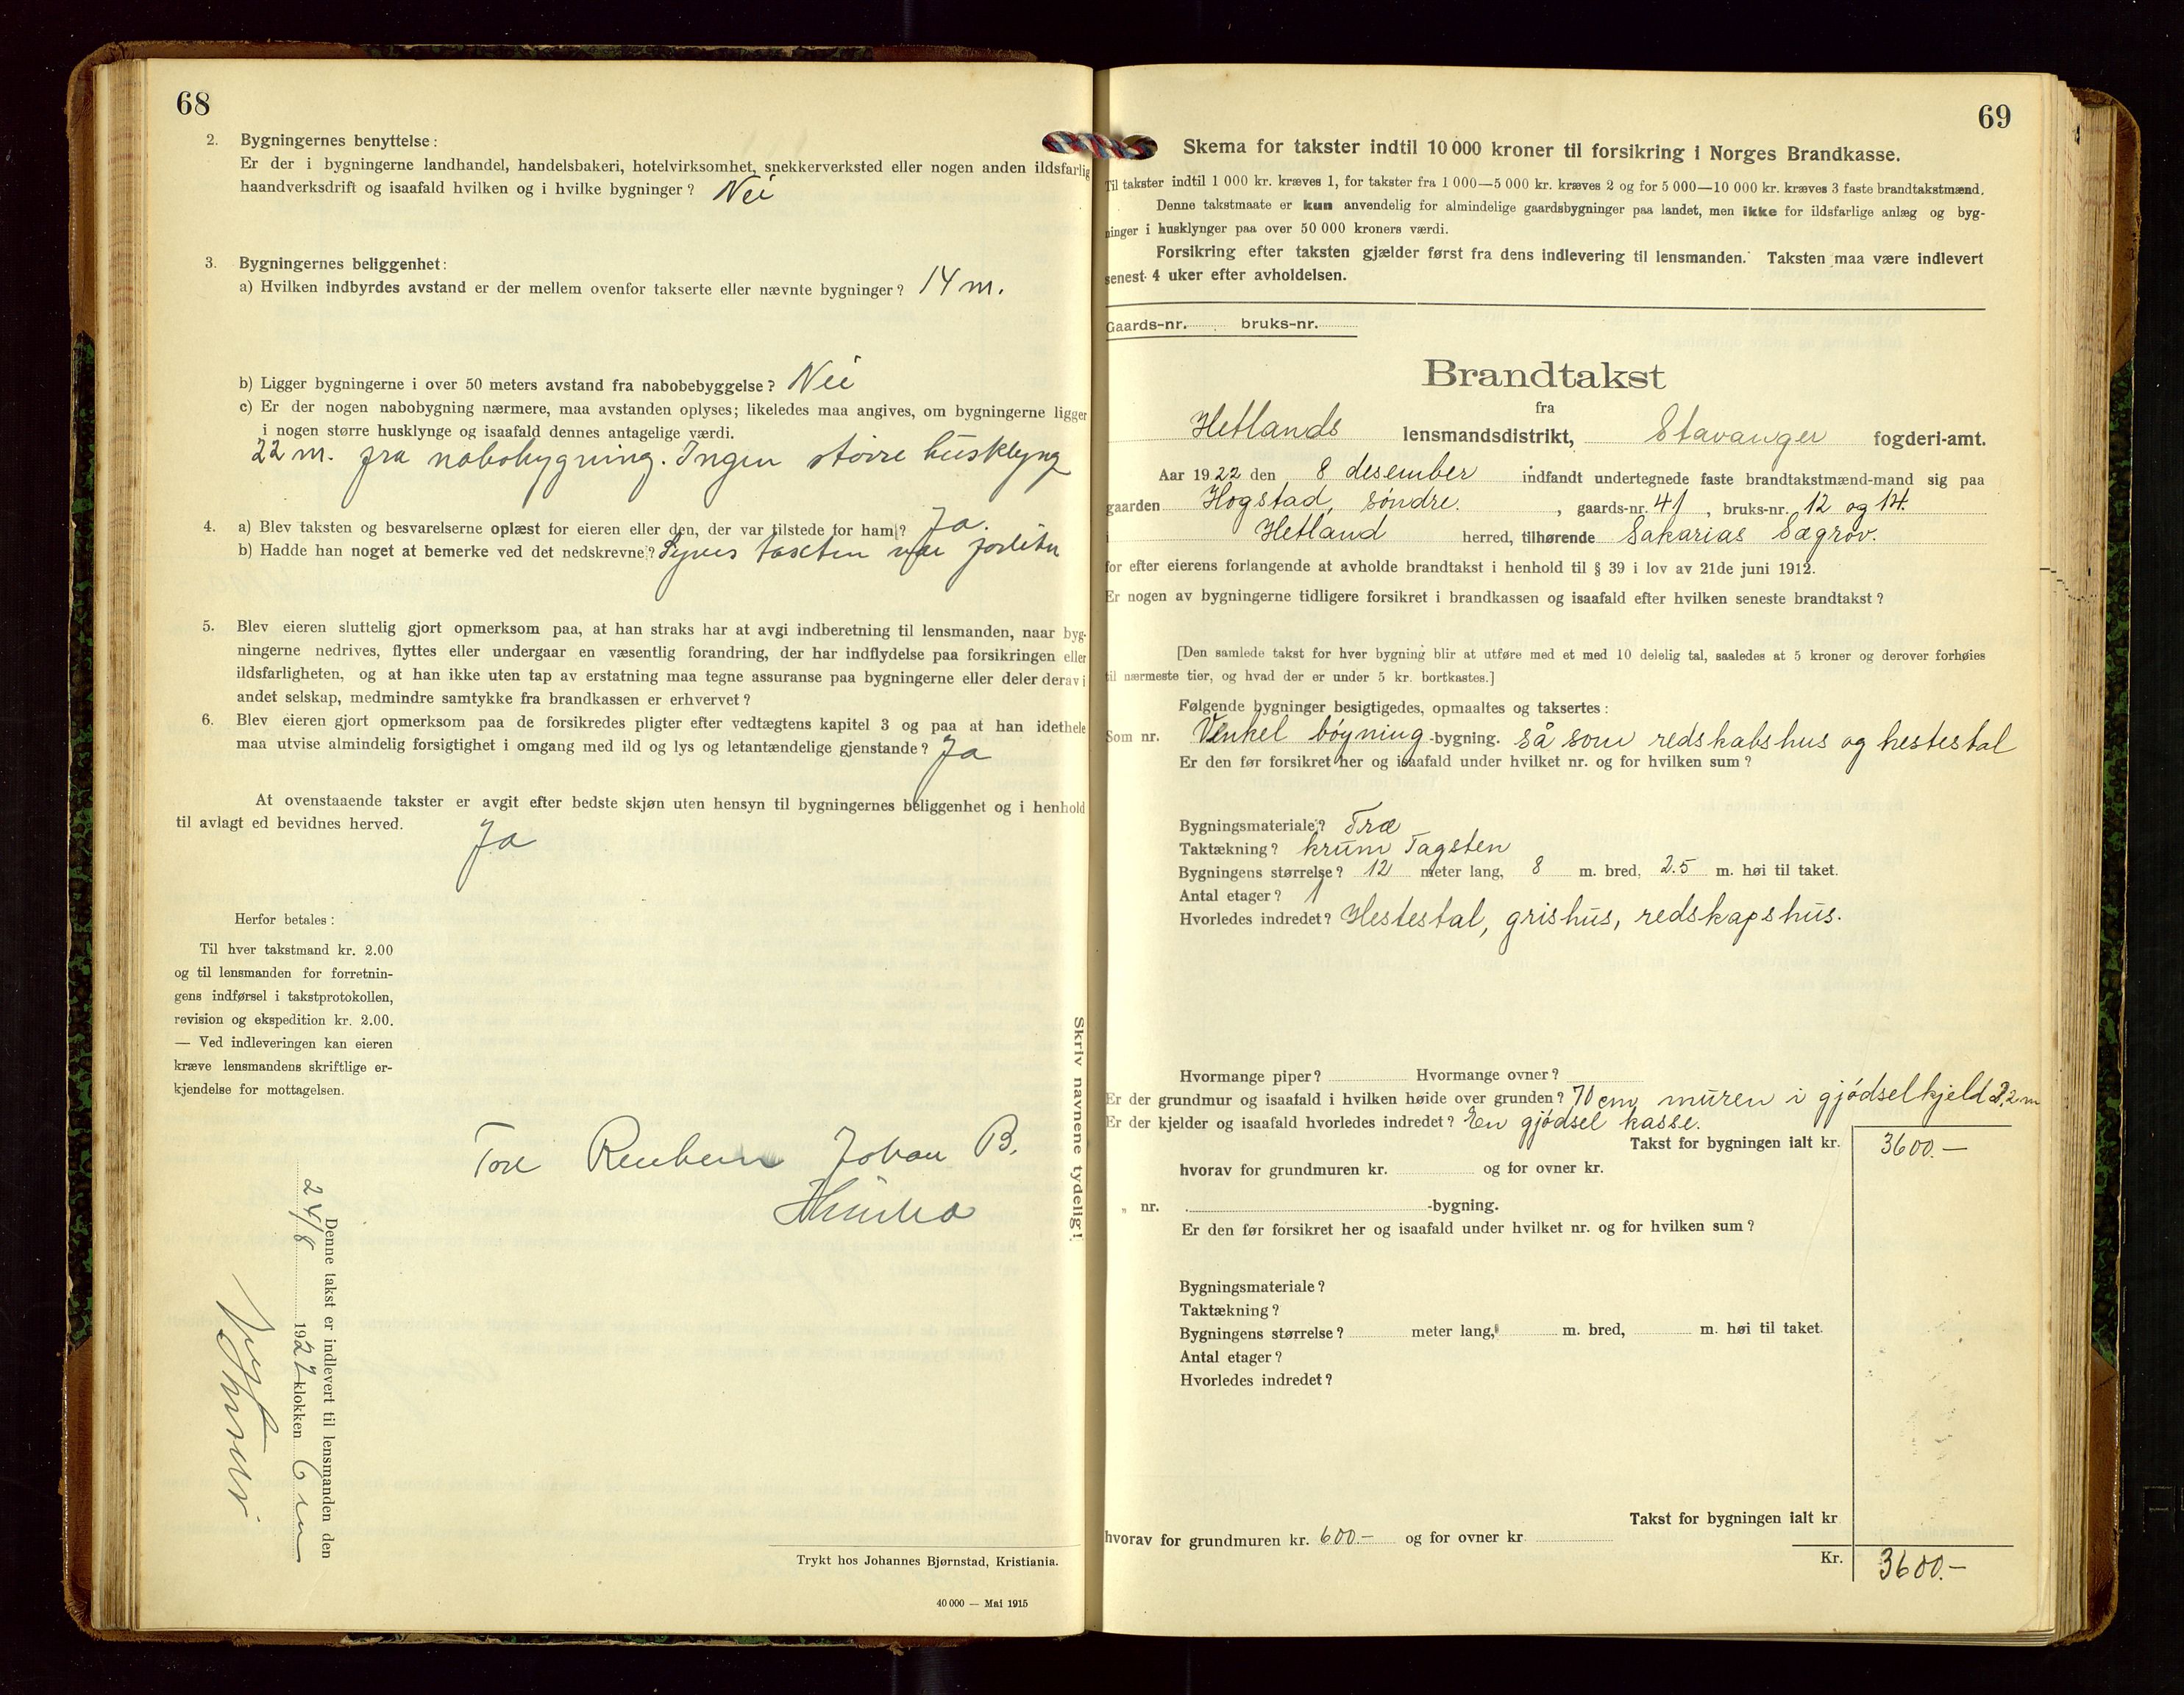 68
2. Bygningernes benyttelse:
Er der i bygningerne landhandel, handelsbakeri, hotelvirksomhet, snekkerverksted eller nogen anden ildsfarlig
haandverksdrift og isaafald hvilken og i hvilke bygninger? Nei
3. Bygningernes beliggenhet:
a) Hvilken indbyrdes avstand er der mellem ovenfor takserte eller nævnte bygninger? 14 m.
b) Ligger bygningerne i over 50 meters avstand fra nabobebyggelse? Nei
c) Er der nogen nabobygning nærmere, maa avstanden oplyses; likeledes maa angives, om bygningerne ligger
i nogen større husklynge og isaafald dennes antagelige værdi.
22 m. fra nabobygning. Ingen større husklyng
4. a) Blev taksten og besvarelserne oplæst for eieren eller den, der var tilstede for ham? Ja.
b) Hadde han noget at bemerke ved det nedskrevne? Synes taxten var for liten
5. Blev eieren sluttelig gjort opmerksom paa, at han straks har at avgi indberetning til lensmanden, naar byg-
ningerne nedrives, flyttes eller undergaar en væsentlig forandring, der har indflydelse paa forsikringen eller
ildsfarligheten, og at han ikke uten tap av erstatning maa tegne assuranse paa bygningerne eller deler derav i
andet selskap, medmindre samtykke fra brandkassen er erhvervet?
6. Blev eieren gjort opmerksom paa de forsikredes pligter efter vedtægtens kapitel 3 og paa at han idethele
maa utvise almindelig forsigtighet i omgang med ild og lys og letantændelige gjenstande? Ja
At ovenstaaende takster er avgit efter bedste skjøn uten hensyn til bygningernes beliggenhet og i henhold
til avlagt ed bevidnes herved. Ja
Herfor betales:
Til hver takstmand kr. 2.00
og til lensmanden for forretnin-
gens indførsel i takstprotokollen,
revision og ekspedition kr. 2.00.
— Ved indleveringen kan eieren
kræve lensmandens skriftlige er-
kjendelse for mottagelsen.
Tore Johan B.
Skriv navnene tydelig!
Denne takst er indlevert til lensmanden den
24/8 1922 klokken 6 em
Trykt hos Johannes Bjørnstad, Kristiania.
40 000 — Mai 1915
69
Skema for takster indtil 10 000 kroner til forsikring i Norges Brandkasse.
Til takster indtil 1 000 kr. kræves 1, for takster fra 1 000—5 000 kr. kræves 2 og for 5 000—10 000 kr. kræves 3 faste brandtakstmænd.
Denne takstmaate er kun anvendelig for almindelige gaardsbygninger paa landet, men ikke for ildsfarlige anlæg og byg-
ninger i husklynger paa over 50 000 kroners værdi.
Forsikring efter taksten gjælder først fra dens indlevering til lensmanden. Taksten maa være indlevert
senest 4 uker efter avholdelsen.
Gaards-nr. bruks-nr.
Brandtakst
fra
Hetlands lensmandsdistrikt, Stavanger fogderi-amt.
Aar 1922 den 8 desember indfandt undertegnede faste brandtakstmænd-mand sig paa
gaarden Hogstad, søndre. , gaards-nr. 41 , bruks-nr. 12 og 14.
i Hetland herred, tilhørende Sakarias Sægrov.
for efter eierens forlangende at avholde brandtakst i henhold til § 39 i lov av 21de juni 1912.
Er nogen av bygningerne tidligere forsikret i brandkassen og isaafald efter hvilken seneste brandtakst?
[Den samlede takst for hver bygning blir at utføre med et med 10 delelig tal, saaledes at 5 kroner og derover forhøies
til nærmeste tier, og hvad der er under 5 kr. bortkastes.]
Følgende bygninger besigtigedes, opmaaltes og taksertes:
Som nr. Vinkel bøyning -bygning. så som redskabshus og hestestal
Er den før forsikret her og isaafald under hvilket nr. og for hvilken sum?
Bygningsmateriale? Træ
Taktækning? krum Tagsten
Bygningens størrelse? 12 meter lang, 8 m. bred, 2.5 m. høi til taket.
Antal etager? 1
Hvorledes indredet? Hestestal, grishus, redskapshus.
Hvormange piper? Hvormange ovner?
Er der grundmur og isaafald i hvilken høide over grunden? 70 cm, muren i gjødselkjeld 2,2 m
Er der kjelder og isaafald hvorledes indredet? En gjødsel kasse.
Takst for bygningen ialt kr. 3600.—
hvorav for grundmuren kr. og for ovner kr.
„ nr. -bygning.
Er den før forsikret her og isaafald under hvilket nr. og for hvilken sum?
Bygningsmateriale?
Taktækning?
Bygningens størrelse? meter lang, m. bred, m. høi til taket.
Antal etager?
Hvorledes indredet?
Takst for bygningen ialt kr
hvorav for grundmuren kr. 600.— og for ovner kr
Kr. 3600.—